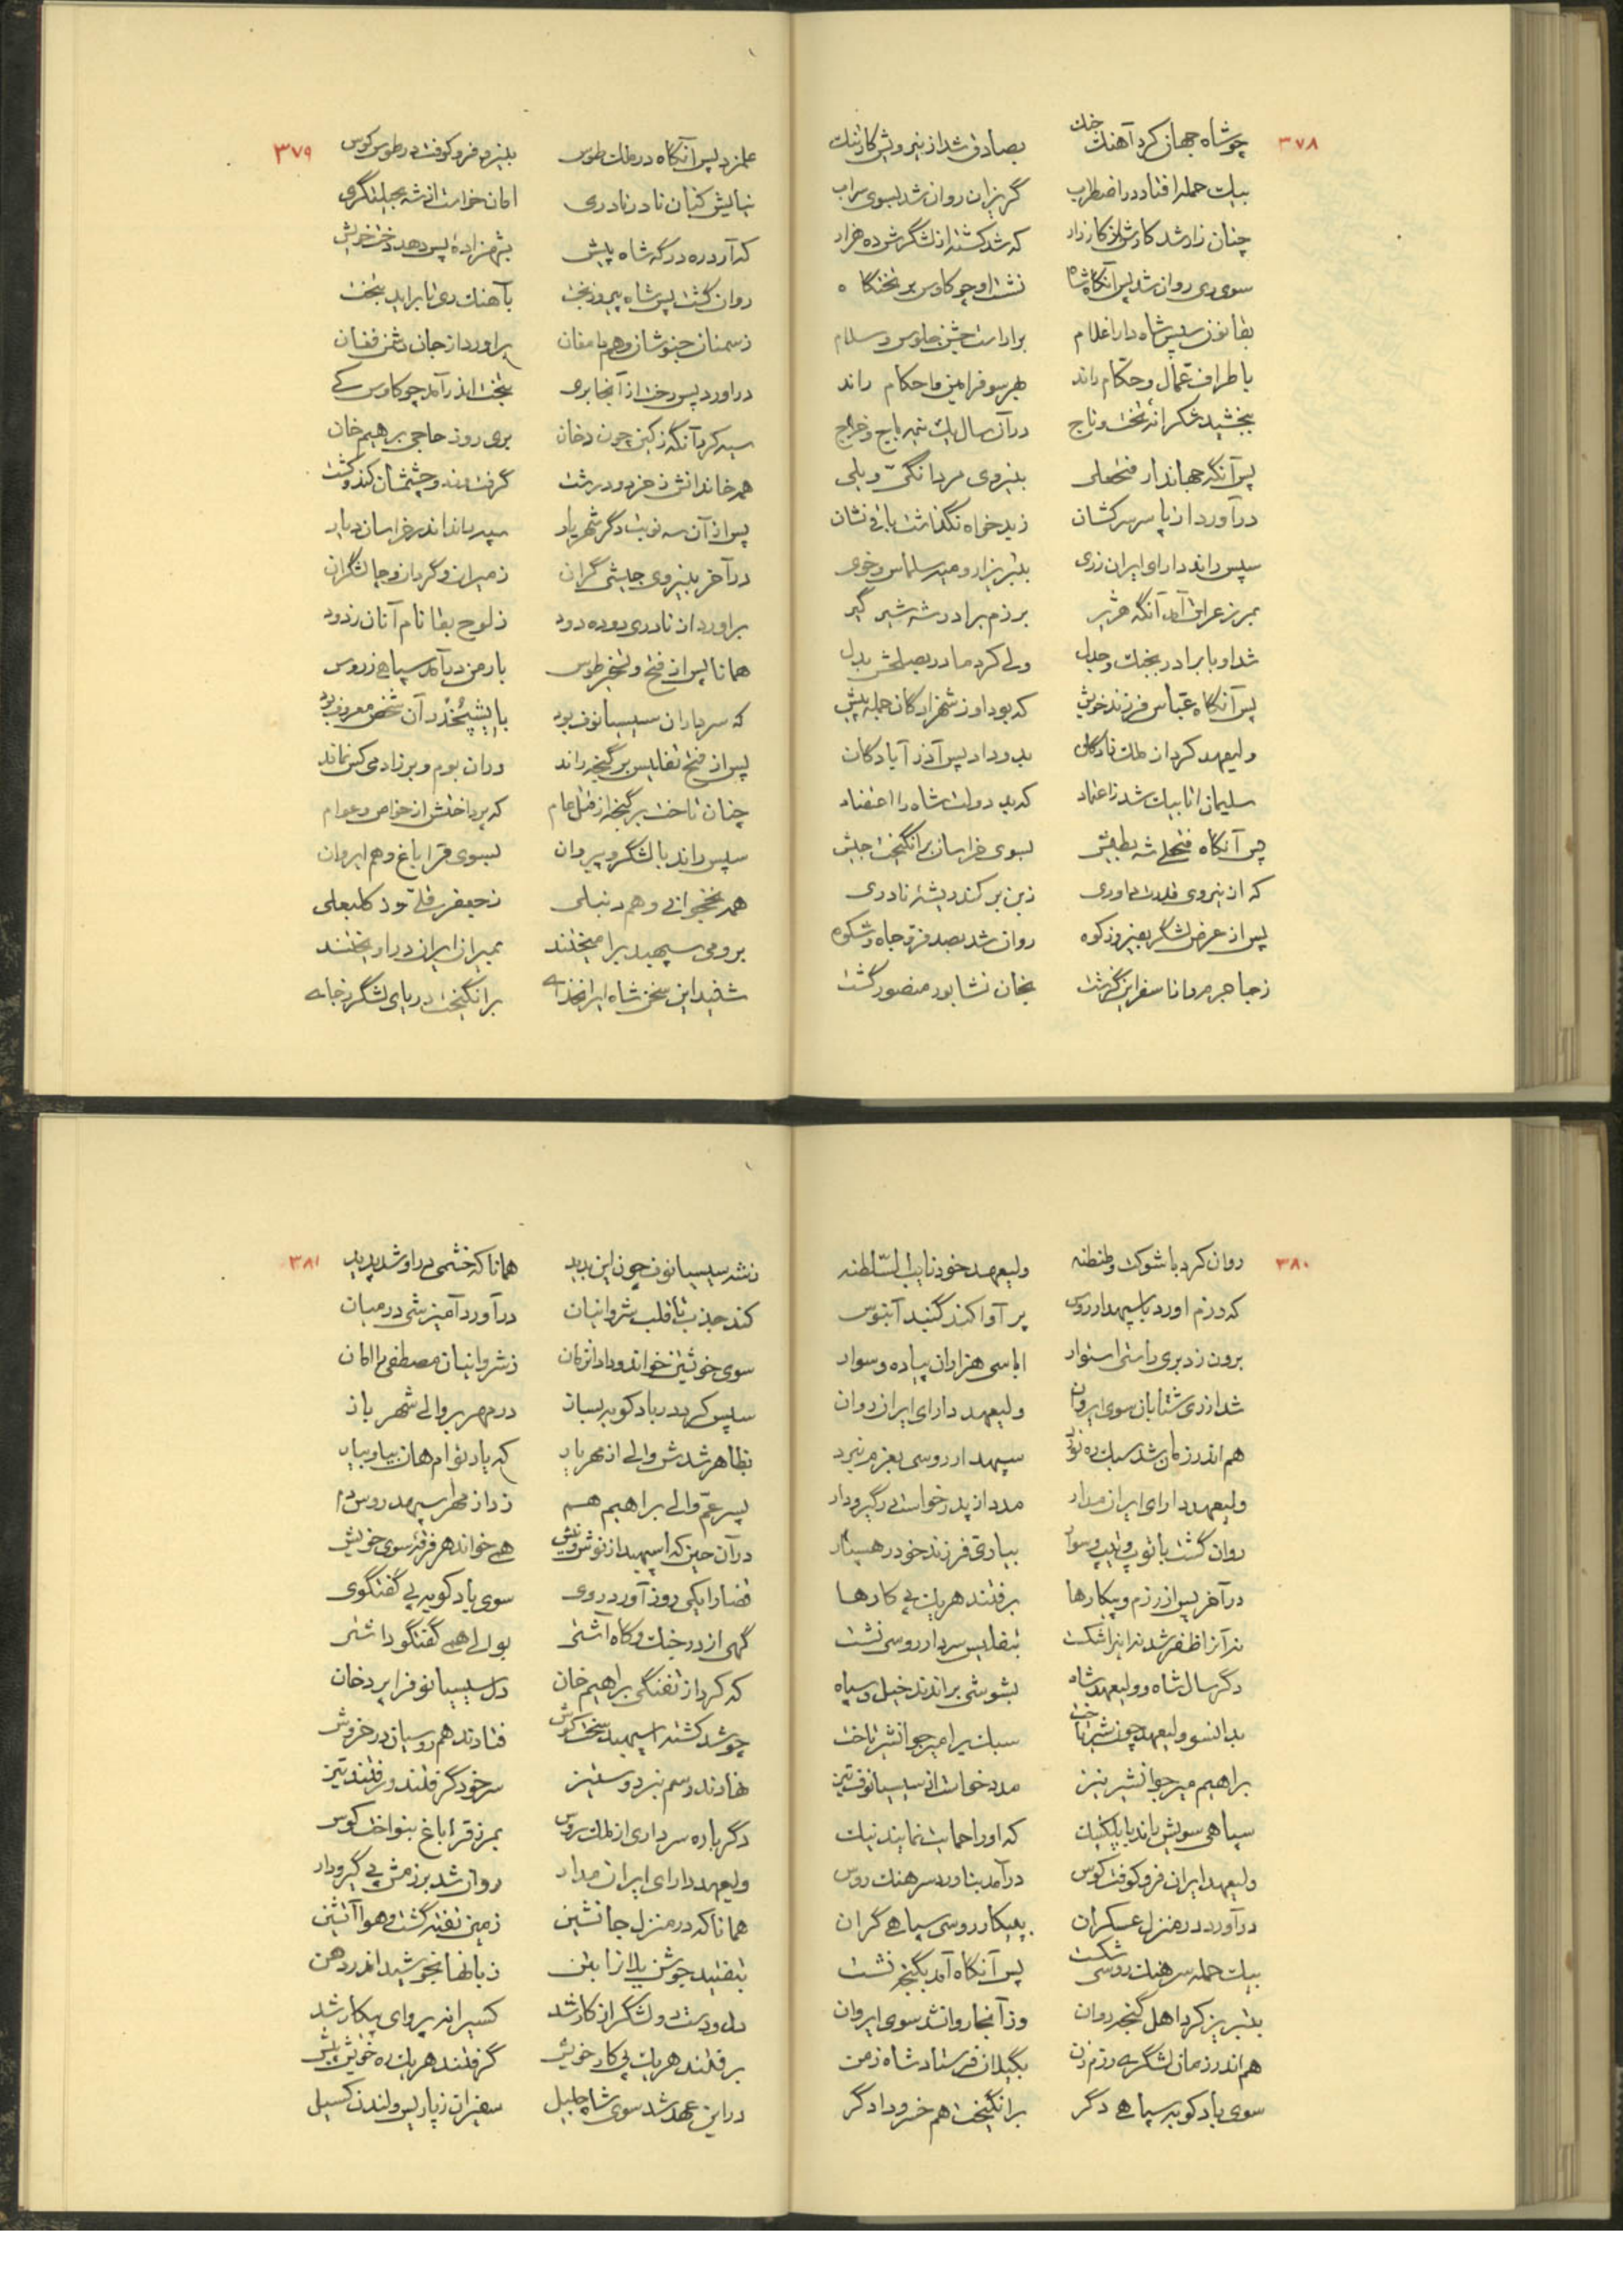 ۳۷۸
چو شاه جهان کرد آهنگ جنگ بصادق شد از نیرویش کار تنگ
بیک حمله افتاد در اضطراب گریزان روان شد بسوی سراب
چنان زار شد کارش از کارزار که شد کشته از لشگرش ده هزار
سوی ری روان شد پس آنگاه شاه نشست او چو کاوس بر تختگاه
بقانون سپس شاه دارا غلام براراست جشن جلوس و سلام
باطراف عمال و حکام راند بهر سو فرامین و احکام راند
ببخشید شکرانهٔ تخت و تاج در آن سال یک نیمه باج و خراج
پس آنگه جهاندار فتحعلی بنیروی مردانگی و یلی
درآورد از پا سر سرکشان ز بدخواه نگذاشت باقی نشان
سپس راند دارای ایران ز ری بتبریز و ارومیه سلماس و خوی
بمرز عراق آمد آنگه هژبر برزم برادر شه شیر گیر
شد او با برادر بجنگ و جدل ولی کرد مادر بصلحش بدل
پس آنگاه عباس فرزند خویش که بود او ز شهزادگان جمله پیش
ولیعهد کرد از ملک‌زادگان بدو داد پس آذرآبادگان
سلیمان اتابیک شد ز اعتماد که بد دولت شاه را اعتضاد
پس آنگاه فتحعلی شه بطیش بسوی خراسان برانگیخت جیش
که از نیروی قدرت داوری ز بن برکند ریشهٔ نادری
پس از عرض لشگر بفیروزکوه روان شد بصد فر و جاه و شکوه
ز جاجرم و دانا سفراین گذشت بخان نشابور منصور گشت
۳۷۹
علم زد پس آنگاه در ملک طوس بنیزد فرو کوفت در طوس کوس
نیایش کنان نادر نادری امان خواست از شه بحیلتگری
که آرد ره درگه شاه پیش بشهزادهٔ پس دهد دخت خویش
روان گشت پس شاه پیروزبخت بآهنگ ری تا براید بتخت
ز سمنان جنوشان و هم دامغان براورد از جان دشمن فغان
دراورد پس رخت از آنجا بری بتخت اندر آمد چو کاوس کی
سیه کرد آنگه ز کین چون دخان بری روز حاجی برهیم خان
همه خاندانش ز خرد و درشت گرفت و بند و چشمشان کند و کشت
پس از آن سه نوبت دگر شهریار سپه راند اندر خراسان دیار
در آخر بنیروی جیشی گران ز میران و گردان و جالشگران
براورد از نادری دوده دود ز لوح بقا نام آنان زدود
همانا پس از فتح و تسخیر طوس بارمن درآمد سپاهی ز روس
که سرداران سیسیانوف بود باایشپخدر آن شخص معروف بود
پس از فتح تفلیس بر گنجه راند در ان بوم و بر زادمی کس نماند
چنان تاخت بر گنجه از قتل عام که پرداختش از خواص و عوام
سپس راند با لشگر و پیروان بسوی قراباغ و هم ایروان
همه نخجوانی و هم دنبلی ز جعفر قلی تو ز کلبعلی
برومی سپهبد برامیختند بمیران ایران دراویختند
شنید این سخن شاه ایرانخدای برانگیخت دریای لشگر ز جای
۳۸۰
روان کرد با شوکت و طنطنه ولیعهد خود نایب السلطنه
که رزم اورد با سپهدار روس پر آوا کند گنبد آبنوس
برون زد بری رایتی استوار ابا سی هزاران پیاده و سوار
شد از ری شتابان سوی ایروان ولیعهد دارای ایران روان
هم اندر زمان شد سبک ره نورد سپهدار روسی بعزم نبرد
ولیعهد دارای ایران مدار مدد از پدر خواست در گیرودار
روان گشت با توپ و تیپ و سوار بیاری فرزند خود رهسپار
در آخر پس از رزم و پیکارها برفتند هر یک پی کارها
نه آنرا ظفر شد نه اینرا شکست بتفلیس سردار روسی نشست
دگر سال شاه و ولیعهد شاه بشوشی براندند خیل و سپاه
بدانسو ولیعهد چون شیر تاخت سبک بر امیر جوانشیر تاخت
براهیم میر جوانشیر نیز مدد خواست از سیسیانوف تیز
سپاهی سویش راند با پلکنیک که او را حمایت نماید نیک
ولیعهد ایران فرو کوفت کوس درآمد بناورد سرهنگ روس
درآورد در منزل عسکران بپیکار روسی سپاهی گران
بیک حمله سرهنگ روسی شکست پس آنگاه آمد بگنجه نشست
بتبریز کرد اهل گنجه روان وز آنجا روان شد سوی ایروان
هم اندر زمان لشگری رزم زن بگیلان فرستاد شاه زمن
سوی بادکوبه سپاهی دگر برانگیخت هم خسرو دادگر
۳۸۱
نشد سیسیانوف چون این بدید همانا که خشمی در او شد پدید
کند جذب تا قلب شروانیان درآورد آمیزشی در میان
سوی خویشتن خواند و داد از زمان ز شروانیان مصطفی را امان
سپس کرد در بادکوبه بساز در مهر بر والی شهر باز
بظاهر شدش والی از مهر یار که یار توام هان بیا و بیار
پسر عم والی براهیم هم ز داز مهر سپهبد روس دم
در آن حین که اسپهبد از نوش و نیش همی خواند هر فرقه سوی خویش
قضا را یکی روز آورد روی سوی بادکوبه پی گفتگوی
گهی از در جنگ و گاه آشتی بوالی همی گفتگو داشتی
که کرد از تفنگی براهیم خان دل سیسیانوف را پر دخان
چو شد کشته اسپهبد سخت کوش فتادند هم روسیان در خروش
نهادند رسم نبرد و ستیز سر خود گرفتند و رفتند تیز
دگرباره سرداری از ملک روس بمرز قراباغ بنواخت کوس
ولیعهد دارای ایران مدار روان شد برزمش پی گیرودار
همانا که در منزل جانشین زمین تفته گشت و هوا آتشین
بتفتید جوشن یلانرا بتن زبانها بجوشید اندر دهن
دل و دست و لشگر از کار شد کسی را نه پروای پیکار شد
برفتند هر یک پی کار خویش گرفتند هر یک ره خویش پیش
در این عهد شد سوی شاه جلیل سفیران ز پاریس و لندن گسیل